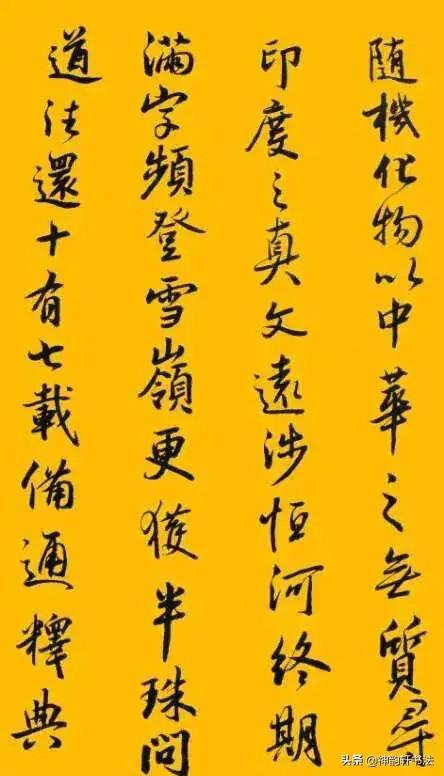 隨機化物以中華之無質尋
印度之真文遠涉恒河終期
滿字頻登雪嶺更獲半珠問
道往還十有七載備通釋典
头条 @神韵轩书法